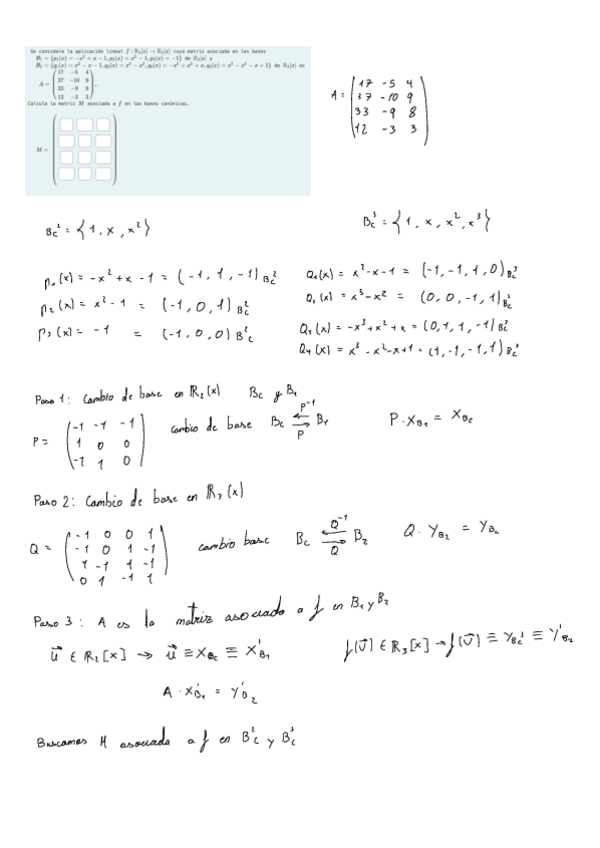 Se considera la aplicación lineal f : ℝ₂[x] → ℝ₃[x] cuya matriz asociada en las bases
B₁ = {p₁(x) = −x² + x − 1, p₂(x) = x² − 1, p₃(x) = −1} de ℝ₂[x] y
B₂ = {q₁(x) = x² − x − 1, q₂(x) = x³ − x², q₃(x) = −x³ + x² + x, q₄(x) = x³ − x² − x + 1} de ℝ₃[x] es
A = (17 −5 4
37 −10 9
33 −9 8
12 −3 3).
Calcula la matriz M asociada a f en las bases canónicas.
M =
A = (17 -5 4
37 -10 9
33 -9 8
12 -3 3)
Bc² = {1, x, x²}
Bc³ = {1, x, x², x³}
p₁(x) = -x² + x - 1 = (-1, 1, -1) Bc²
p₂(x) = x² - 1 = (-1, 0, 1) Bc²
p₃(x) = -1 = (-1, 0, 0) B²c
Q₁(x) = x² - x - 1 = (-1, -1, 1, 0) Bc³
Q₂(x) = x³ - x² = (0, 0, -1, 1) Bc³
Q₃(x) = -x³ + x² + x = (0, 1, 1, -1) Bc³
Q₄(x) = x³ - x² - x + 1 = (1, -1, -1, 1) Bc³
Paso 1: Cambio de base en ℝ₂(x) Bc y B₁
P = (-1 -1 -1
1 0 0
-1 1 0)
cambio de base Bc P⁻¹ ⇄ P B₁
P · X_B₁ = X_Bc
Paso 2: Cambio de base en ℝ₃(x)
Q = (-1 0 0 1
-1 0 1 -1
1 -1 1 -1
0 1 -1 1)
cambio base Bc Q⁻¹ ⇄ Q B₂
Q · Y_B₂ = Y_Bc
Paso 3: A es la matriz asociada a f en B₁ y B₂
u⃗ ∈ ℝ₂[x] → u⃗ ≡ X_Bc ≡ X'_B₁
f(v⃗) ∈ ℝ₃[x] → f(v⃗) ≡ Y_Bc³ ≡ Y'_B₂
A · X'_B₁ = Y'_B₂
Buscamos M asociada a f en B²c y B³c